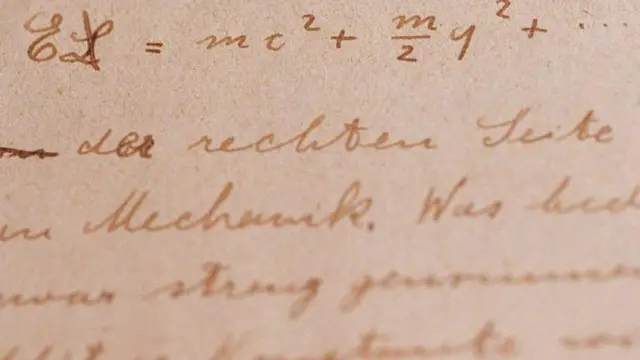 EL = mc² + m/2 q² + ...
der rechten Seite
in Mechanik. Was
zwar streng genommen
Konstante